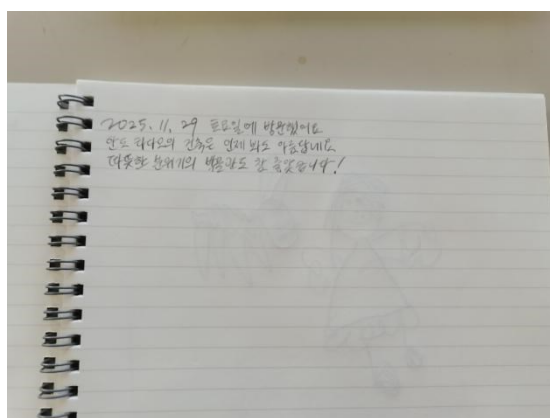 2025. 11. 29 토요일에 방문했어요
안도 타다오의 건축은 언제 봐도 아름답네요
따뜻한 분위기의 박물관도 참 좋았습니다!